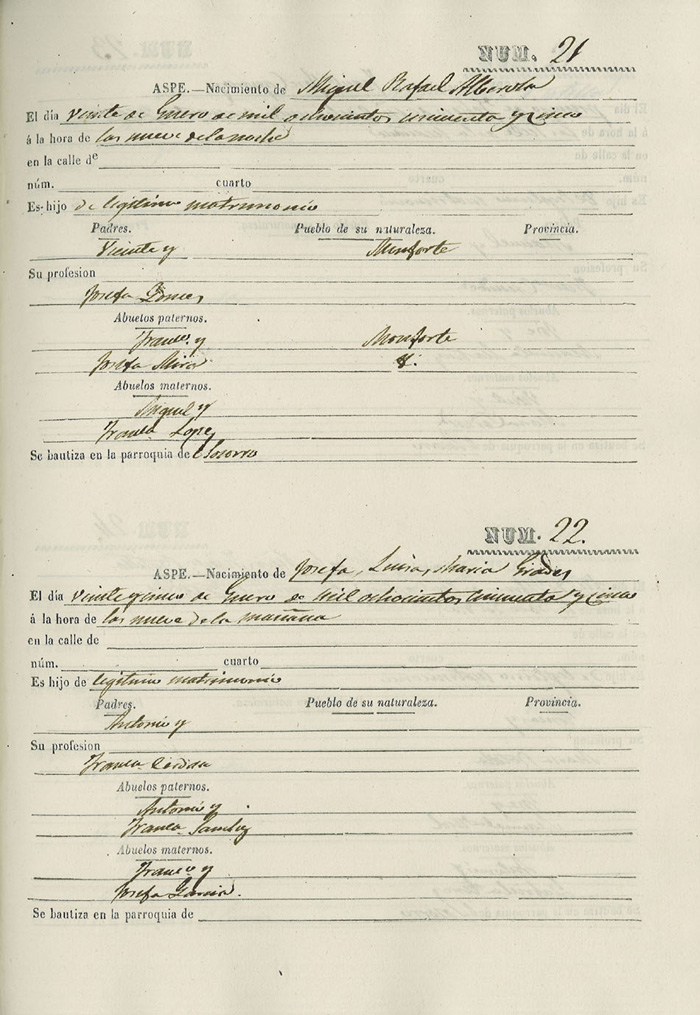 NUM. 21
ASPE.—Nacimiento de Miguel Rafael Alberola
El día veinte de Enero de mil ochocientos cincuenta y cinco
á la hora de las nueve de la noche
en la calle de
núm. cuarto
Es hijo de legitimo matrimonio
Padres. Pueblo de su naturaleza. Provincia.
Vicente y Monforte
Su profesion
Josefa
Abuelos paternos.
Franco. y Monforte
Josefa Mira
Abuelos maternos.
Miguel y
Franca Lopez
Se bautiza en la parroquia de Socorro
NUM. 22.
ASPE.—Nacimiento de Josefa, Luisa, Maria
El día veinte y cinco de Enero de mil ochocientos cincuenta y cinco
á la hora de las nueve de la mañana
en la calle de
núm. cuarto
Es hijo de legitimo matrimonio
Padres. Pueblo de su naturaleza. Provincia.
Antonio y
Su profesion
Franca Cerdan
Abuelos paternos.
Antonio y
Franca Sanchez
Abuelos maternos.
Franco y
Josefa Garcia.
Se bautiza en la parroquia de